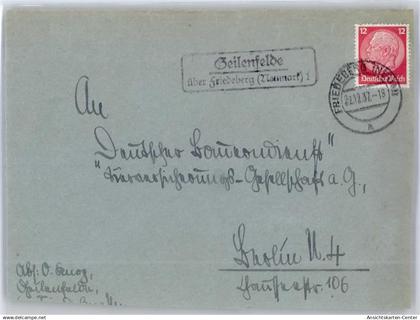 Geilenfelde
über Friedeberg (Neumark) 1
12 12
Deutsches Reich
FRIEDEBERG
22.12.37.-18
a
An
"Deutscher Bauerndienst"
"Tierversicherungs-Gesellschaft a. G.,
Berlin N. 4
106
Abs: O.
Geilenfelde,
Ansichtskarten-Center